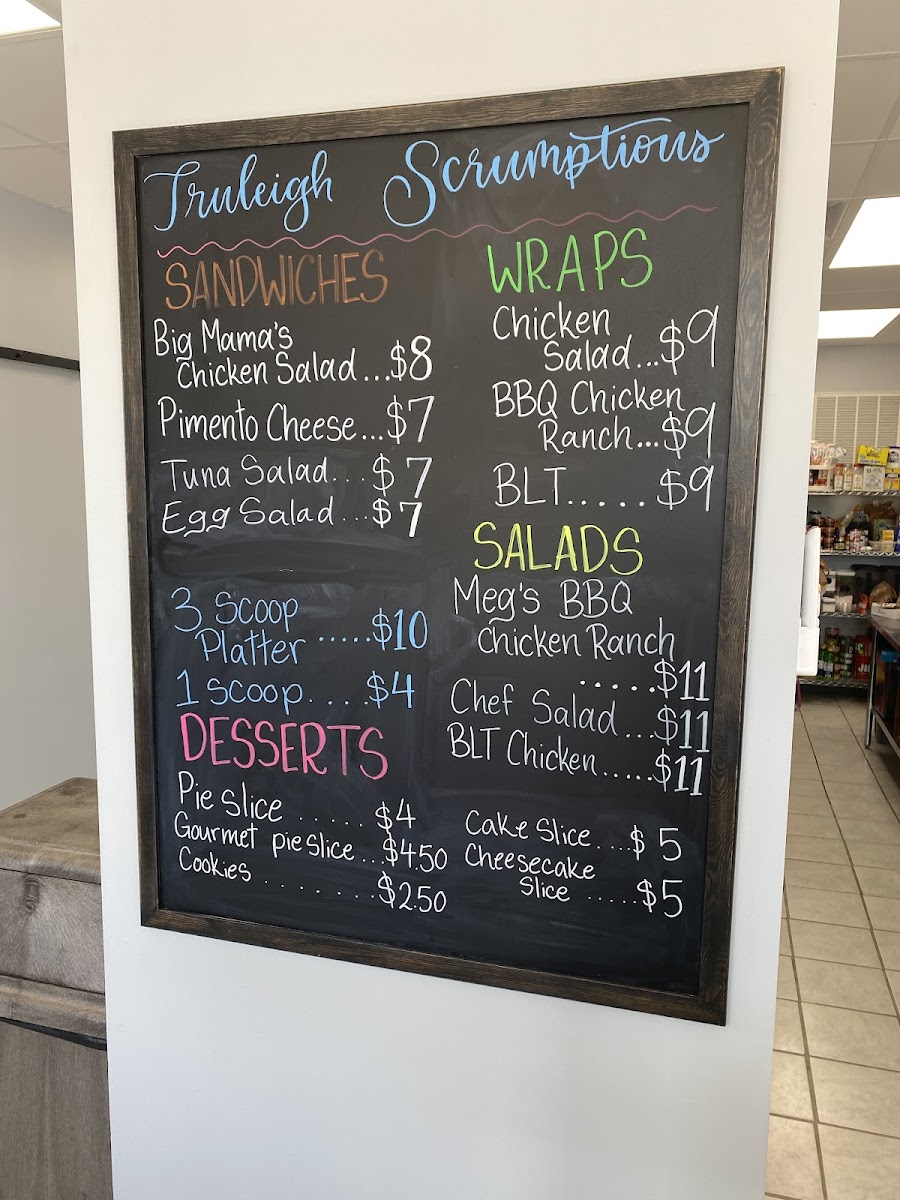 Truleigh Scrumptious
SANDWICHES
Big Mama's
Chicken Salad...$8
Pimento Cheese...$7
Tuna Salad...$7
Egg Salad...$7
3 Scoop
Platter.....$10
1 scoop....$4
DESSERTS
Pie Slice......$4
Gourmet pie slice...$4.50
Cookies
..........$2.50
WRAPS
Chicken
Salad...$9
BBQ Chicken
Ranch...$9
BLT.....$9
SALADS
Meg's BBQ
Chicken Ranch
.....$11
Chef Salad...$11
BLT Chicken.....$11
Cake Slice....$5
Cheesecake
Slice.....$5